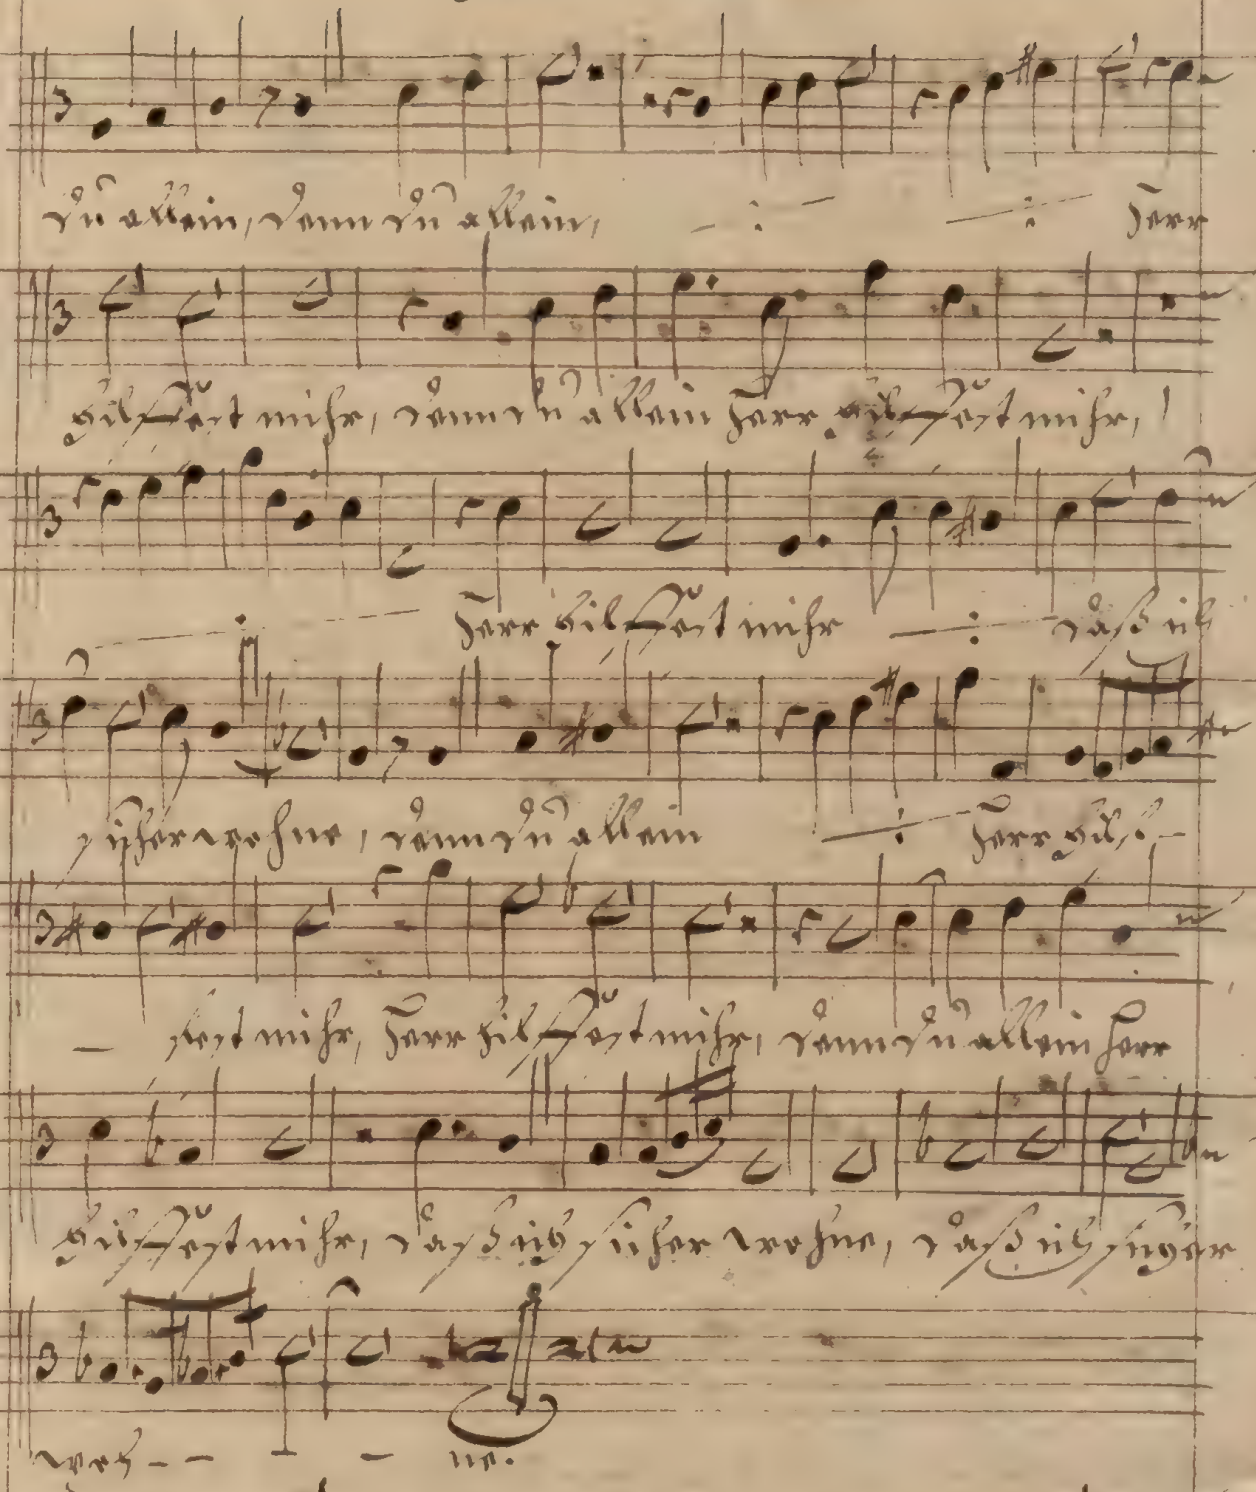 du allein, denn du allein, - : - - : - Herr
hilffest mihr, denn du allein Herr hilffest mihr,
- : - Herr hilffest mihr - : - daß ich
sicher wohne, denn du allein - : - Herr hilf -
- fest mihr, Herr hilffest mihr, denn du allein Herr
hilffest mihr, daß ich sicher wohne, daß ich sicher
woh - - - - ne.